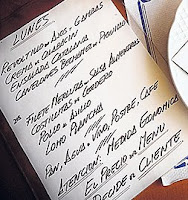 LUNES
REVOLTILLO DE AJOS Y GAMBAS
CREMA DE CHAMPIÑÓN
ENSALADA CATALANA
CANELONES BECHAMEL DE PESCADO
FILETE MERLUZA, SALSA ALMENDRAS
COSTILLITAS DE CORDERO
POLLO AL AJILLO
LOMO PLANCHA
PAN, AGUA O VINO, POSTRE, CAFÉ
ATENCIÓN: MEDIDA ECONÓMICA
EL PRECIO DEL MENÚ
DECIDE EL CLIENTE